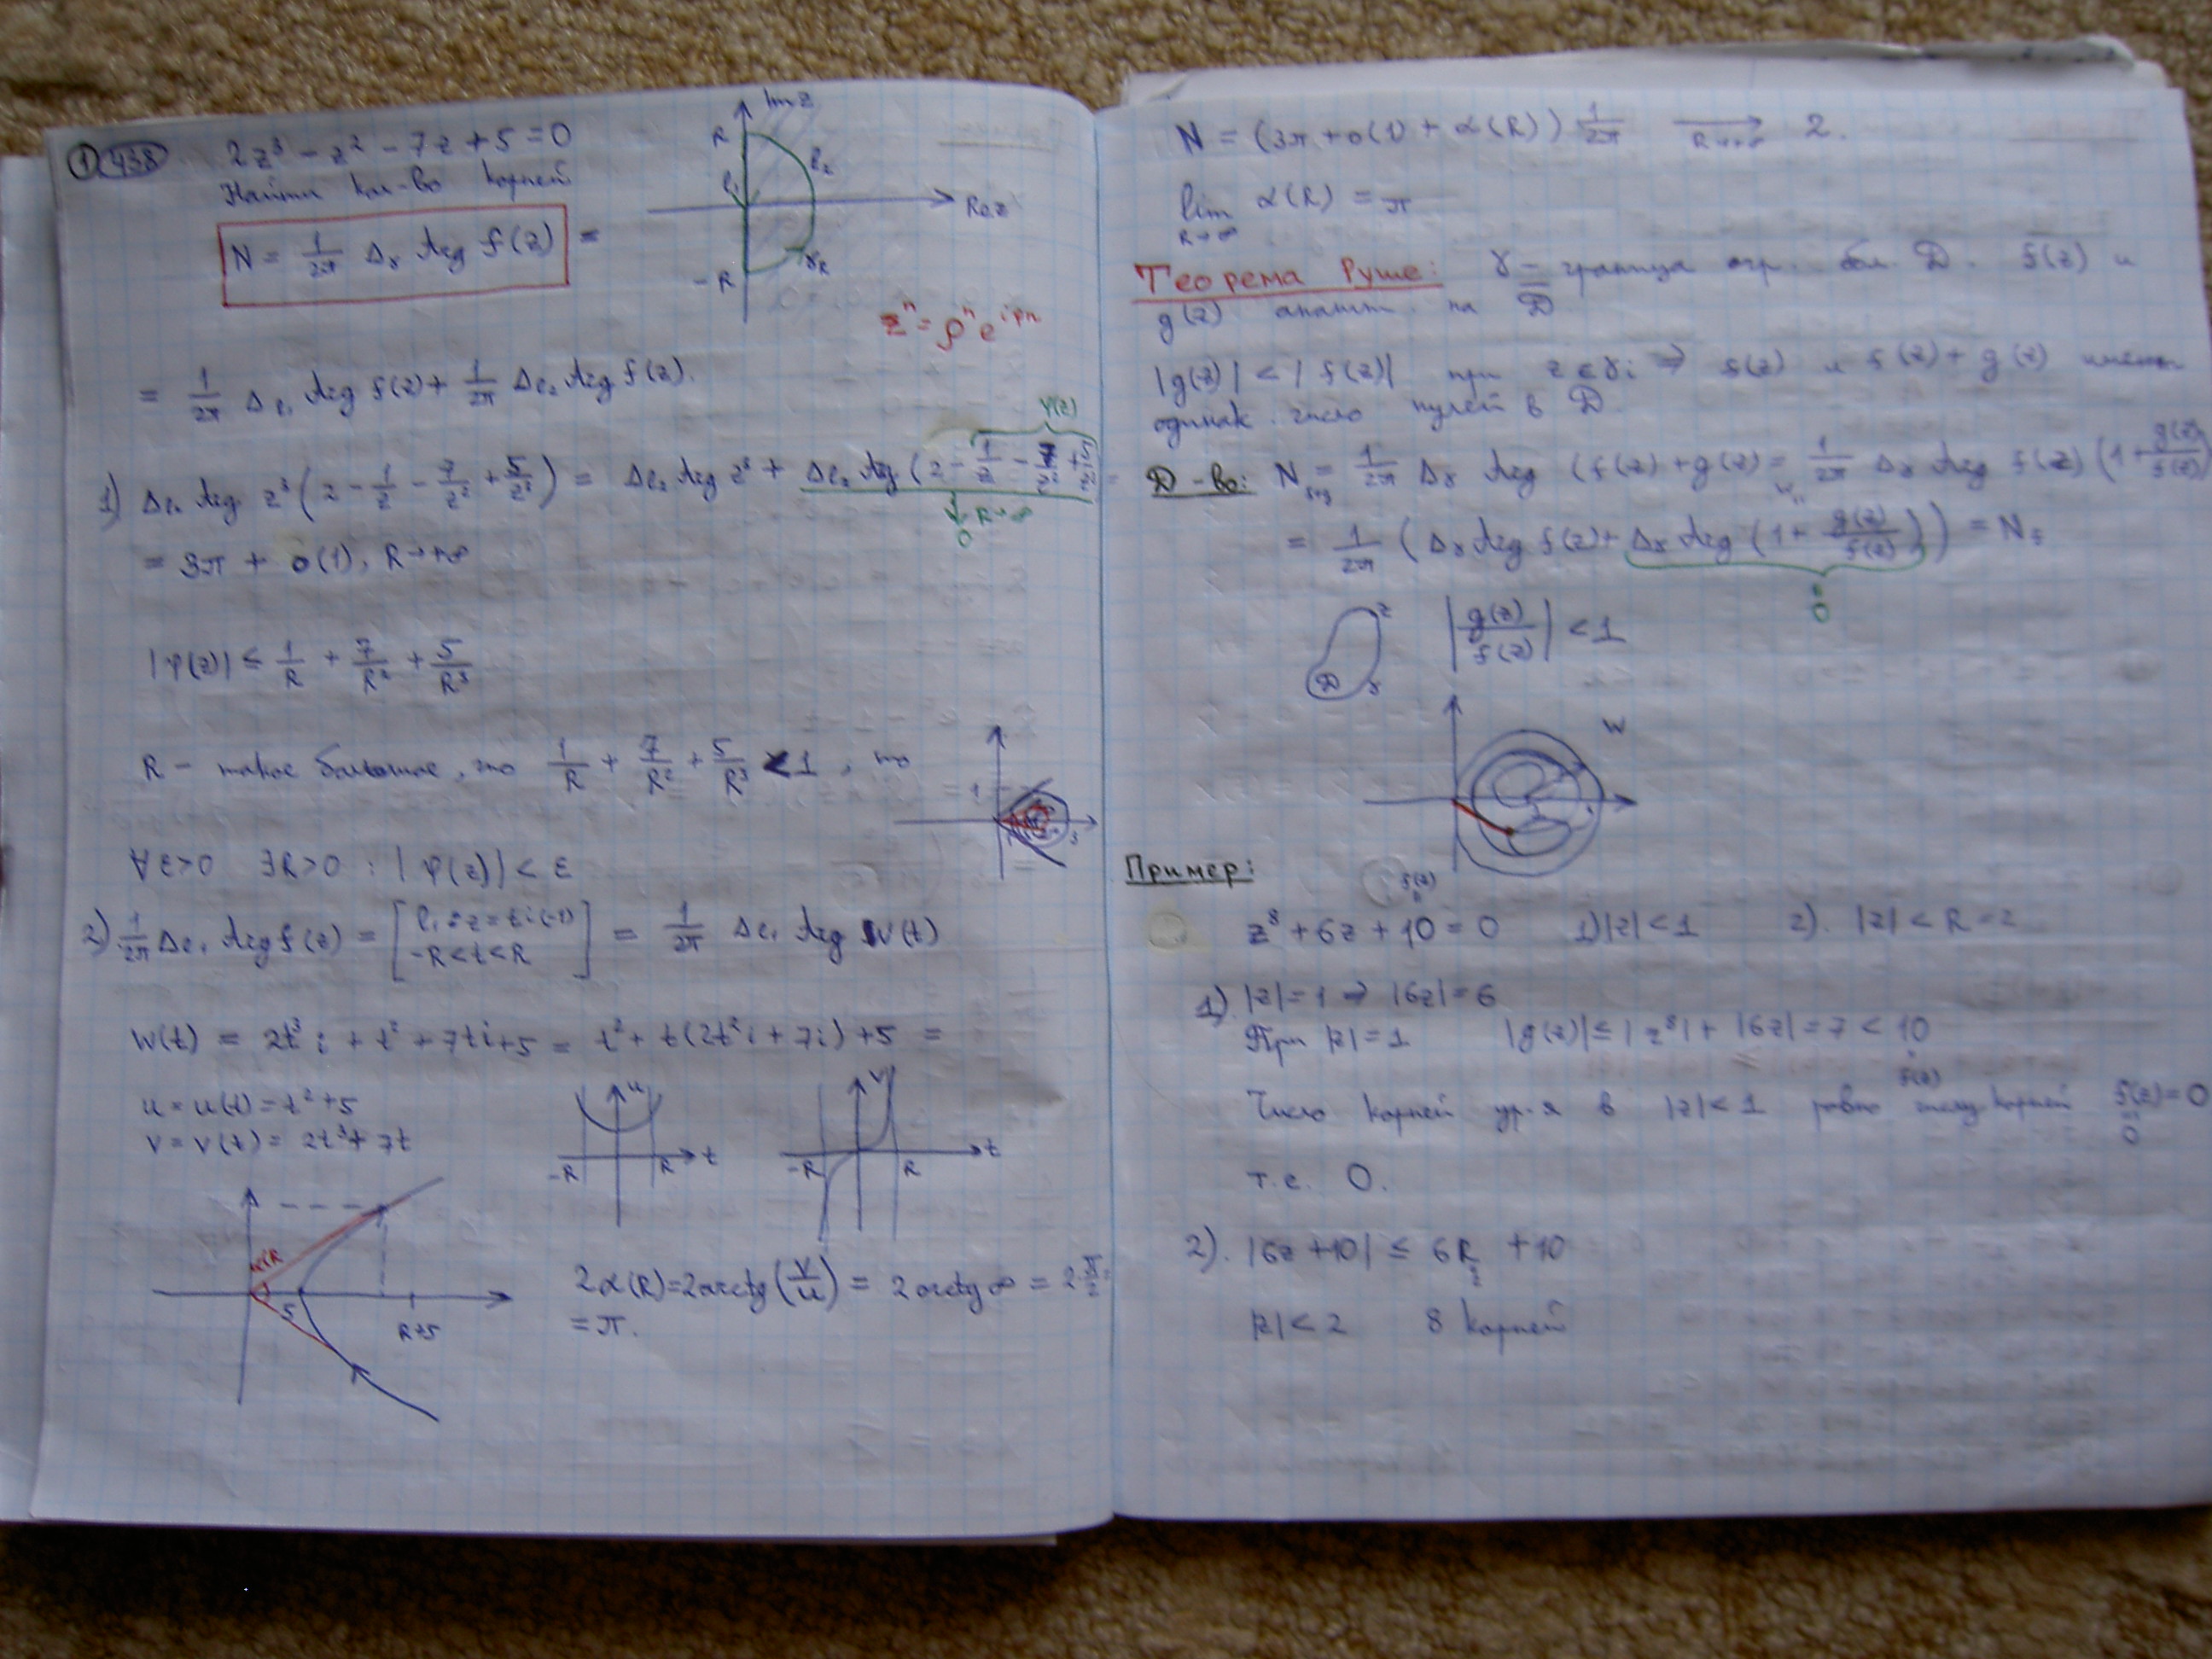 ① 438 2z³ − z² − 7z + 5 = 0
Найти кол-во корней
N = 1/2π Δ_γ Arg f(z) =
Im z
R
l₁
l₂
Re z
−R
γ_R
zⁿ = ρⁿ e^{iφn}
= 1/2π Δ_{l₁} Arg f(z) + 1/2π Δ_{l₂} Arg f(z).
ψ(z)
1) Δ_{l₂} Arg z³ (2 − 1/z − 7/z² + 5/z³) = Δ_{l₂} Arg z³ + Δ_{l₂} Arg (2 − 1/z − 7/z² + 5/z³) =
R→∞
0
= 3π + o(1), R→+∞
|ψ(z)| ≤ 1/R + 7/R² + 5/R³
R − такое большое, что 1/R + 7/R² + 5/R³ < 1, то
∀ε>0 ∃R>0 : |ψ(z)| < ε
2) 1/2π Δ_{l₁} Arg f(z) = [l₁: z = ti(−1)
−R<t<R] = 1/2π Δ_{l₁} Arg W(t)
W(t) = 2t³i + t² + 7ti + 5 = t² + t(2t²i + 7i) + 5 =
u = u(t) = t² + 5
v = v(t) = 2t³ + 7t
u
−R R t
v
−R R t
α(R)
5
R+5
2α(R) = 2arctg(v/u) = 2arctg ∞ = 2·π/2 =
= π.
N = (3π + o(1) + α(R)) 1/2π → 2.
R→+∞
lim α(R) = π
R→∞
Теорема Руше: γ − граница огр. обл. D. f(z) и
g(z) аналит. на D̄
|g(z)| < |f(z)| при z∈γ; ⇒ f(z) и f(z) + g(z) имеют
одинак. число нулей в D.
Д-во: N_{f+g} = 1/2π Δ_γ Arg (f(z) + g(z) = 1/2π Δ_γ Arg f(z) (1 + g(z)/f(z))
= 1/2π (Δ_γ Arg f(z) + Δ_γ Arg (1 + g(z)/f(z))) = N_f
0
z
D γ
|g(z)/f(z)| < 1
W
Пример:
f(z)
z⁸ + 6z + 10 = 0 1) |z| < 1 2). |z| < R = 2
1) |z| = 1 ⇒ |6z| = 6
При |z| = 1 |g(z)| ≤ |z⁸| + |6z| = 7 < 10
f(z)
Число корней ур-я в |z| < 1 равно числу корней f(z) = 0
0
т.е. 0.
2). |6z + 10| ≤ 6R + 10
2
|z| < 2 8 корней